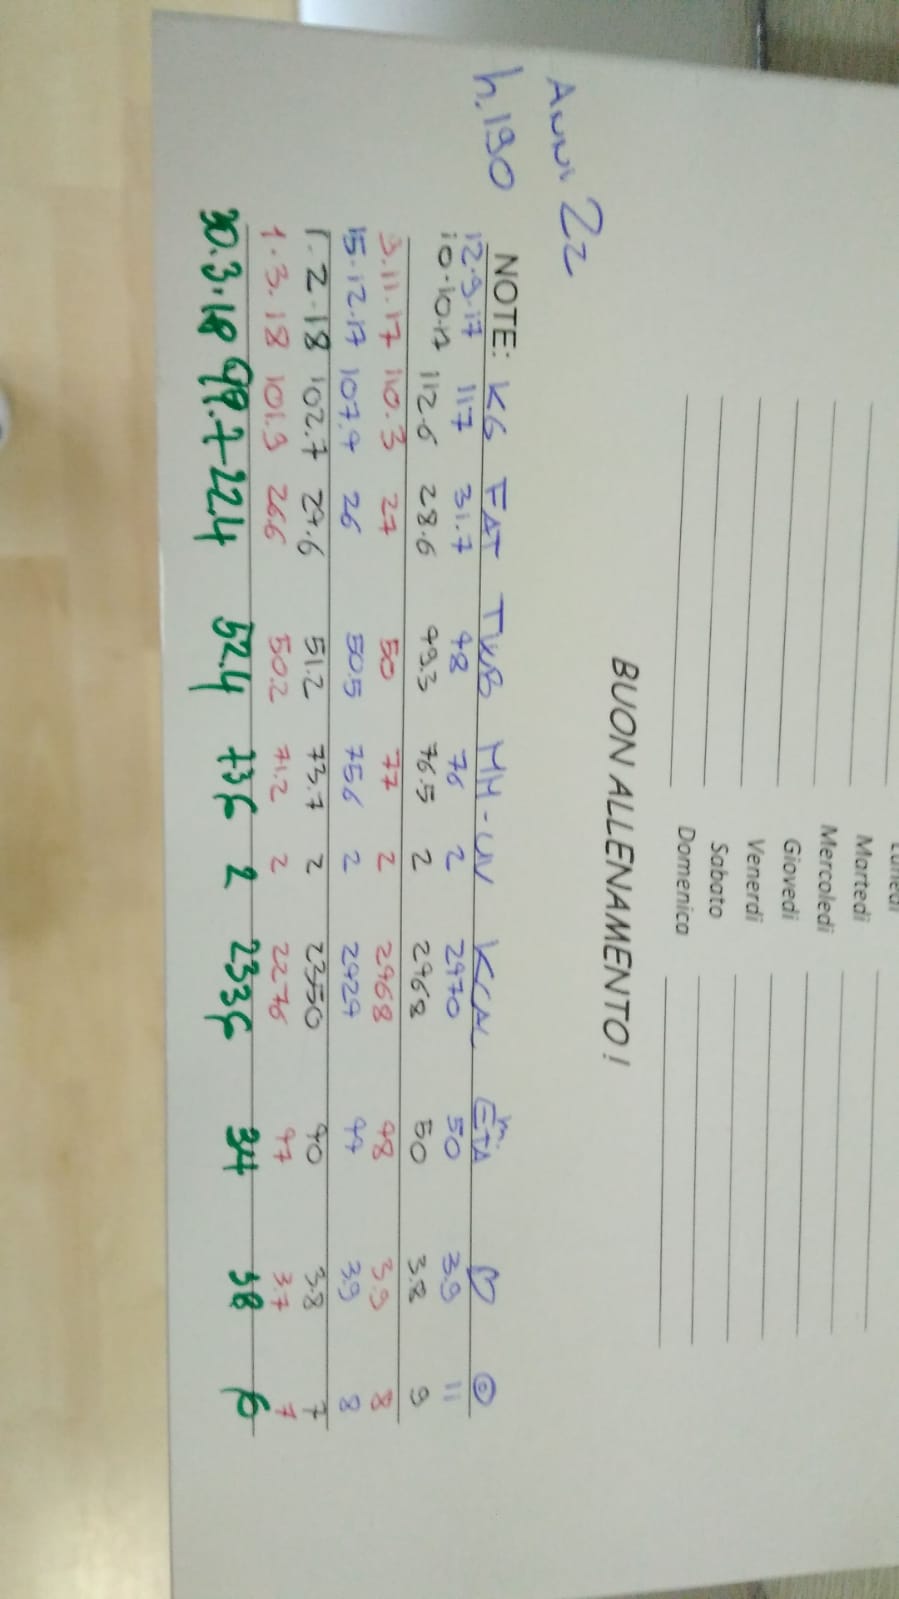 Lunedì
Martedì
Mercoledì
Giovedì
Venerdì
Sabato
Domenica
BUON ALLENAMENTO!
Anni 22
h.190
NOTE: KG FAT TWB MM - LIV KCAL ETÀ m.
12.9.17 117 31.7 48 76 2 2970 50 3.9 11
10.10.17 112.6 28.6 49.3 76.5 2 2968 50 3.8 9
3.11.17 110.3 27 50 77 2 2968 48 3.9 8
15.12.17 107.4 26 50.5 75.6 2 2929 47 3.9 8
1.2.18 102.7 24.6 51.2 73.7 2 2350 40 3.8 7
1.3.18 101.9 26.6 50.2 71.2 2 2276 47 3.7 7
30.3.18 99.7 22.4 52.4 73.6 2 2336 34 3.8 6